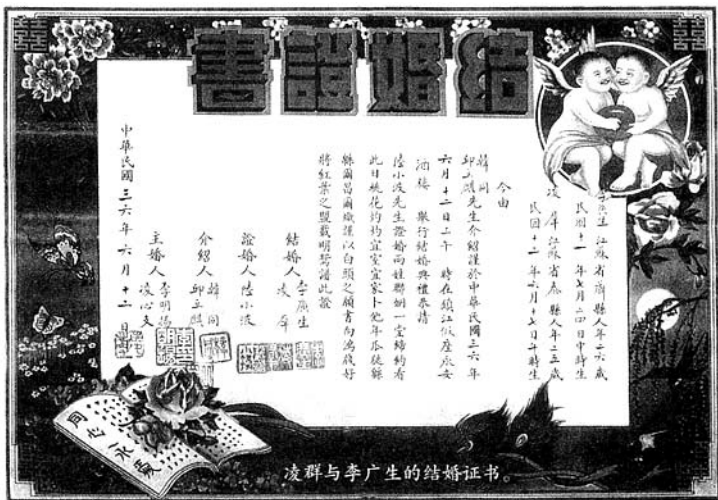 結婚證書
李廣生 江蘇省 縣人年二六歲
民國十一年七月 四日申時生
凌 羣 江蘇省 縣人年二五歲
民國十二年六月十七日 時生
今由
韓同
邱立 先生介紹謹於中華民國三六年
六月十二日上午 時在鎮江 座
酒樓 舉行結婚典禮恭請
陸小波先生證婚兩姓聯姻一堂締約看
此日桃花灼灼宜室宜家卜他年瓜瓞緜
緜爾昌爾熾謹以白頭之願書向鴻箋好
將紅葉之盟載明鴛譜此證
結婚人 李廣生
凌 羣
證婚人 陸小波
介紹人 韓同
邱立
主婚人 李明
凌心支
中華民國三六年六月十二日
同心永愛
凌群与李广生的结婚证书。